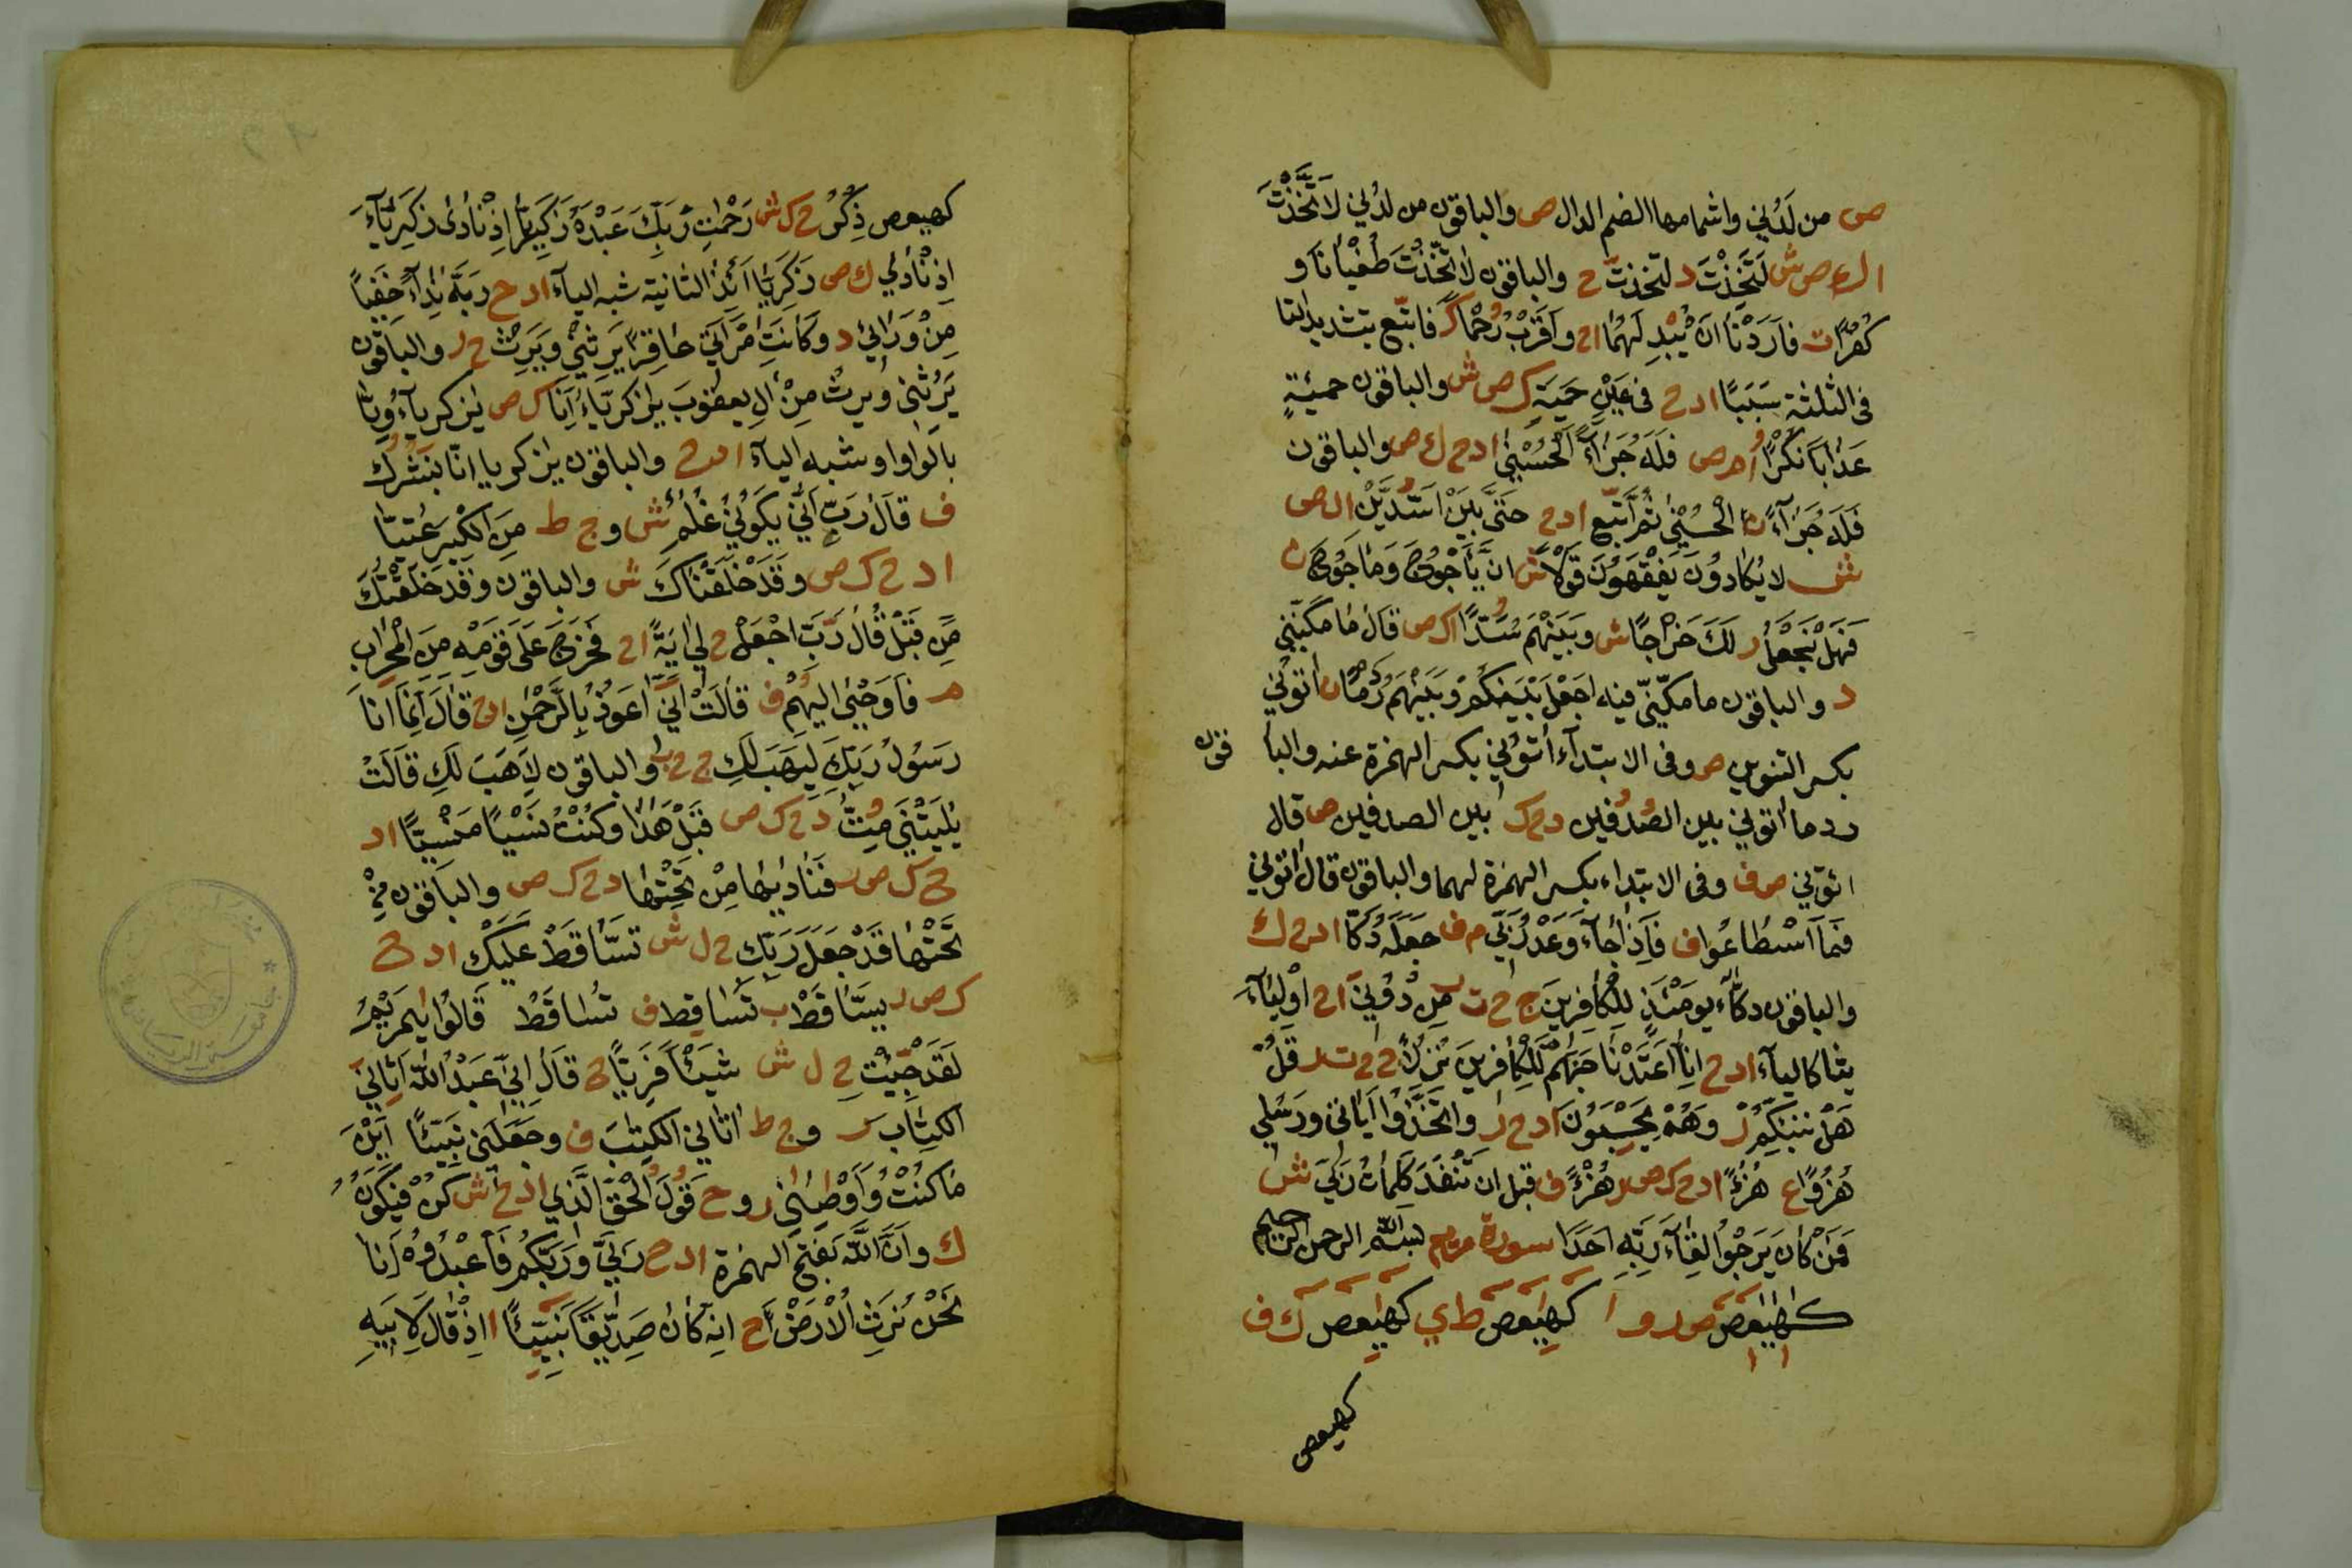 ص من لَدُنِي واشمامها الضم الدال ص والباقون من لدُنِّي لَاتَّخَذْتَ
ا ك ع ص ش لَتَخِذْتَ د لتخذتّ ح والباقون لاتّخذتَّ طُغْيَانًا و
كُفْرًا ت فاَرَدْنَا اَنْ يُبْدِلَهُمَا ا ح واَقْرَبْ رُحُمًا ك فاتّبع بتشديد التا
فى الثلثة سَبَبًا ا د ح فى عَيْنٍ حَمِيَةٍ ك ص ش والباقون حمئةٍ
عَذَابًا نُكُرًا ا م ص فَلَهُ جَزَاءُ الْحُسْنٰى ا د ح ك ص والباقون
فَلَهُ جَزَاءً الْحُسْنٰى ثُمَّ اتَّبع ا د ح حَتّٰى بَيْنَ السُّدَّيْنِ ا ل ص
ش لا يُكَادُونَ يُفْقِهُونَ قَوْلًا ش انَّ يَأْجُوجَ وَمَأْجُوجَ ن
فَهَلْ نَّجْعَلُ ر لَكَ خَرَاجًا ش وبَيْنَهُمْ سُدًّا ا ك ص قال مَا مَكَّنَنِي
د والباقون ما مكّنّي فيه اجعل بَيْنَكُمْ وَبَيْنَهُمْ رَدْمًا ن اتُونِي
بكسر التنوين ص وفى الابتداء اُتوني بكسر الهمزة عنه والبا قون
ردما اتوني بين الصُّدُفين د ح ك بين الصدفين ص قال
ائتوني ص ف وفى الابتداء بكسر الهمزة لهما والباقون قال اتوني
فَمَا اسْطَّاعُوا ف فَاِذَا جَاءَ وَعْدُ رَبِّي م ف جَعَلَهُ دَكًّا ا د ح ك
والباقون دكّاء يومَئذٍ للكافرينَ ج ح ت ب مِن دُونِيَ ا ح اَوْلِيَاءَ
يثا كالياء ا د ح اِنَّا اَعْتَدْنَا جَهَنَّمَ لِلْكَافِرِينَ نُزُلًا ج ح ت ر قُلْ
هَلْ نُنَبِّئُكُمْ ر وَهُمْ يَحْسِبُونَ ا د ح ر واتَّخَذُوا اٰيَاتِي ورَسُلِي
هُزُوًا ع هُزُءًا ا د ح ك ص ر هُزْءًا ف قبل ان تَنْفَدَ كَلِمَاتُ رَبِّي ش
فَمَنْ كَانَ يَرْجُوا لِقَاءَ رَبِّهِ اَحَدًا سورة مريم بسم الله الرحمن الرحيم
كهيعص ص د و ا كهيعص ط ي كهيعص ك ف
كهيعص
كهيعص ذِكْرُ ح ك ش رَحْمَتِ رَبِّكَ عَبْدَهُ زَكَرِيَّا اِذْ نَادٰى زَكَرِيَّاءَ
اِذْ نَادٰى ك ص زَكَرِيَّا اَئِذْ الثانية شبه الياء ا د ح رَبَّهُ نِدَاءً خَفِيًّا
مِنْ وَرَائِيَ د وكَانَتِ امْرَأَتِي عَاقِرًا يَرِثْنِي وَيَرِثْ ح ر والباقون
يَرِثُنِي ويرثُ مِنْ اٰلِ يعقوبَ يٰزكريّاءُ اِنَّا ك ص يٰزكرياءُ وِنَّا
بالواو او شبه الياء ا د ح والباقون يٰزكريا انّا نبَشُرُكَ
ف قَالَ رَبِّ اَنّٰى يَكُونُ لِي غُلٰمٌ ش و ج ط مِنَ الْكِبَرِ عُتِيًّا
ا د ح ك ص وقَدْ خَلَقْنَاكَ ش والباقون وقَدْ خَلَقْتُكَ
مِن قَبْلُ قَالَ رَبِّ اجْعَلْ ح لِيَ اٰيَةً ا ح فَخَرَجَ عَلٰى قَوْمِهِ مِنَ الْمِحْرَابِ
م فَاَوْحٰى اِلَيْهُمْ ف قَالَتْ اِنِّيَ اَعُوذُ بِالرَّحْمٰنِ ا د ح قَالَ اِنَّمَا اَنَا
رَسُولُ رَبِّكِ لِيَهَبَ لَكِ ج ح ب والباقون لِاَهَبَ لَكِ قَالَتْ
يٰلَيْتَنِي مُتُّ د ح ك ص قَبْلَ هٰذَا وكُنْتُ نِسْيًا مَنْسِيًّا ا د
ح ك ص ر فَنَادٰيهَا مَنْ تَحْتَهَا د ح ك ص والباقون مِنْ
تَحْتِهَا قَدْ جَعَلَ رَبُّكِ ح ل ش تَسَّاقَطْ عَلَيْكِ ا د ح
ك ص ر يَسَّاقَطْ ب تَسَاقط ف تُسَاقِطْ قَالُوا يٰمَرْيَمُ
لَقَدْ جِّئْتِ ح ل ش شَيْئًا فَرِيًّا ح قَالَ اِنِّي عَبْدُ اللّٰهِ اٰتَانِيَ
الكِتَاب ر و ج ط اٰتَانِي الكِتٰبَ ف وجَعَلَنِي نَبِيئًا اَيْنَ
مَا كُنْتُ وَاَوْصٰنِي ر و ح قَوْلُ الْحَقِّ الَّذِي ا د ح ش كُنْ فَيَكُونَ
ك واَنَّ اللّٰهَ بفتح الهمزة ا د ح رَبِّي وَرَبُّكُمْ فَاعْبُدُوهُ اَنَا
نَحْنُ نَرِثُ الْاَرْضَ ح اِنَّهُ كَانَ صِدِّيقًا نَبِيئًا ا اِذْ قَالَ لِاَبِيهِ